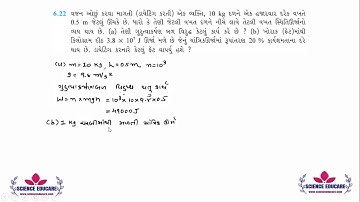 6.22 વજન ઓછું કરવા માગતી (ડાયેટિંગ કરતી) એક વ્યક્તિ, 10 kg દળને એક હજારવાર દરેક વખતે
0.5 m જેટલું ઊંચકે છે. ધારો કે તેણી જેટલી વખત દળને નીચે લાવે તેટલી વખત સ્થિતિઊર્જાનો
વ્યય થાય છે. (a) તેણી ગુરુત્વાકર્ષણ બળ વિરુદ્ધ કેટલું કાર્ય કરે છે ? (b) ખોરાક (ફૅટ)માંથી
કિલોગ્રામ દીઠ 3.8 × 10⁷ J ઊર્જા મળે છે જેનું યાંત્રિકઊર્જામાં રૂપાંતરણ 20 % કાર્યક્ષમતાના દરે
થાય છે. ડાયેટિંગ કરનારે કેટલું ફૅટ વાપર્યું હશે ?
(a) m = 10 kg, h = 0.5m, n = 10³
g = 9.8 m/s²
ગુરુત્વાકર્ષણબળ વિરુદ્ધ થતું કાર્ય
W = n × mgh = 10³ × 10 × 9.8 × 0.5
= 49000 J
(b) 1 kg ચરબીમાંથી મળતી યાંત્રિક ઊર્જા
SCIENCE EDUCARE
SCIENCE EDUCARE